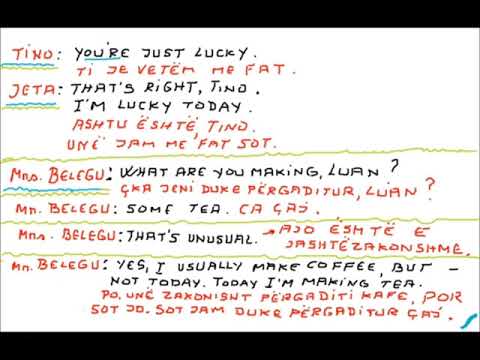 TINO: YOU'RE JUST LUCKY.
TI JE VETËM ME FAT.
JETA: THAT'S RIGHT, TINO.
I'M LUCKY TODAY.
ASHTU ËSHTË, TINO.
UNË JAM ME FAT SOT.
MRS. BELEGU: WHAT ARE YOU MAKING, LUAN?
ÇKA JENI DUKE PËRGADITUR, LUAN?
MR. BELEGU: SOME TEA. CA ÇAJ.
MRS. BELEGU: THAT'S UNUSUAL. → AJO ËSHTË E
JASHTËZAKONSHME.
MR. BELEGU: YES, I USUALLY MAKE COFFEE, BUT –
NOT TODAY. TODAY I'M MAKING TEA.
PO. UNË ZAKONISHT PËRGADITI KAFE, POR
SOT JO. SOT JAM DUKE PËRGADITUR ÇAJ.